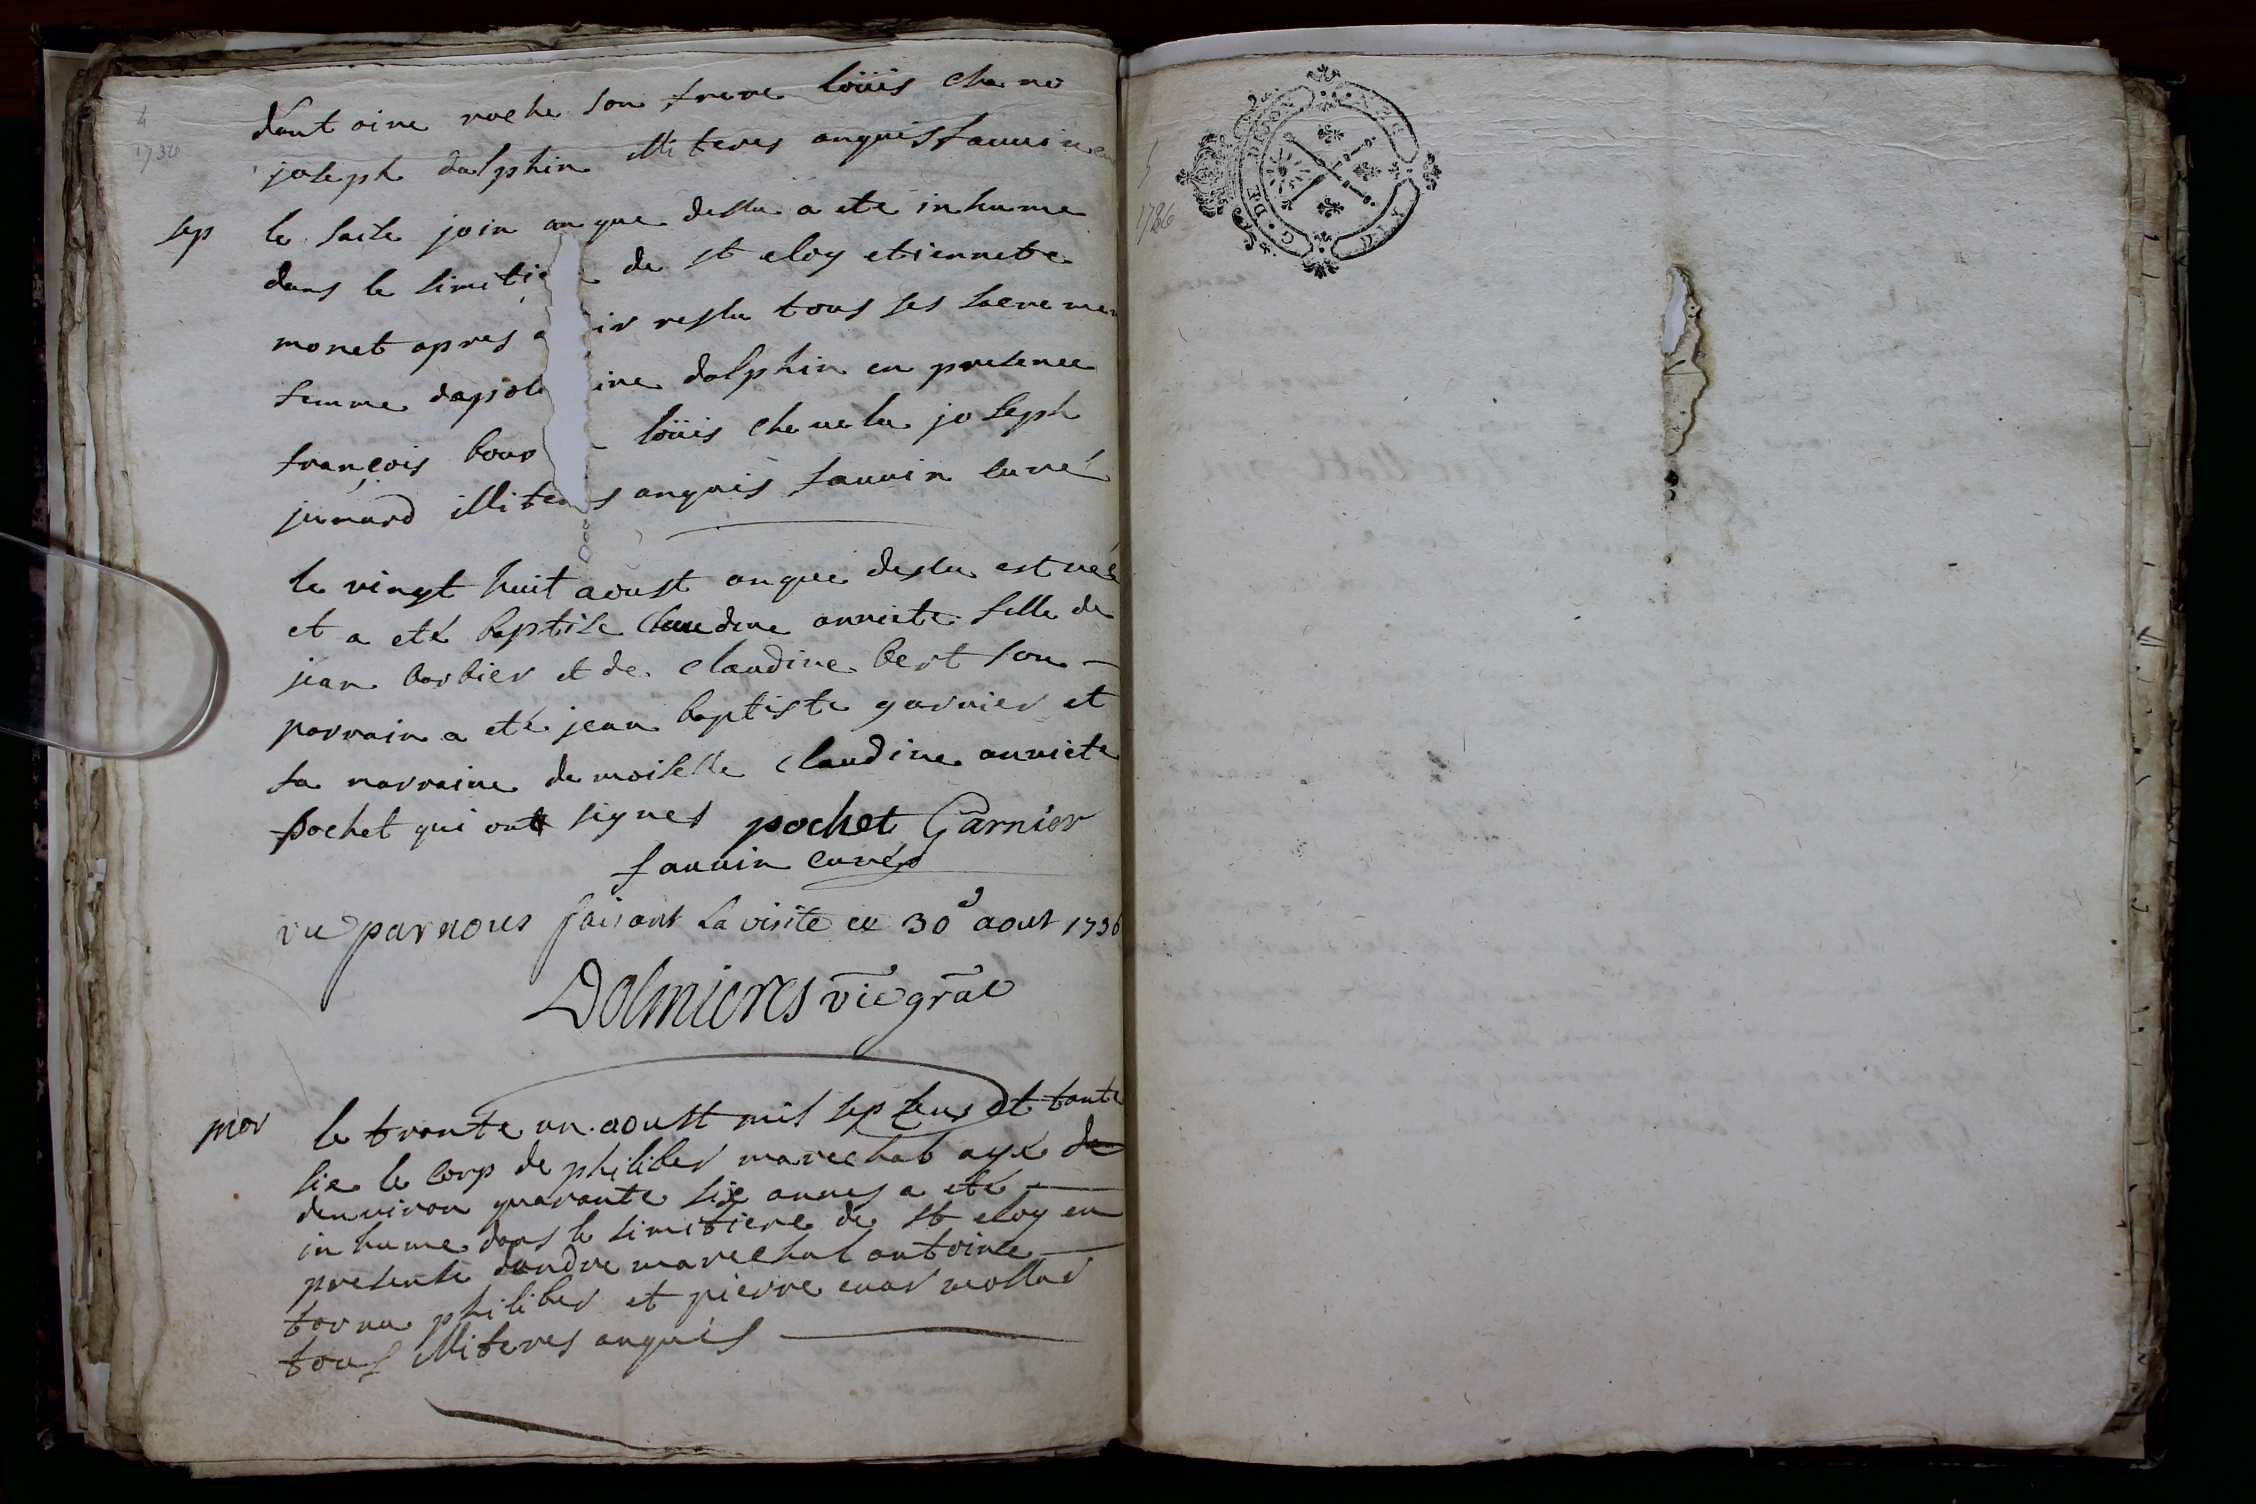 4
1736
dantoine roche son frere loüis chane
joseph dalphin illiteres anquis fauuin
sep
le saise join an que dessu a eté inhume
dans le simitie de st eloy etiennete
monet apres a ir ressu tous ses sacremen
femme dapole ine dalphin en presence
françois bour loüis cheuelu joseph
junard illiteres anquis fauuin curé
le vingt huit aoust an que dessu est neé
et a eté baptise claudine anniete fille de
jean barbier et de claudine bert son
parrain a eté jean baptiste garnier et
sa marraine demoiselle claudine anniete
pochet qui ont signes pochet Garnier
fauuin curé
vu par nous faisant la visite ce 30e aout 1736
Dolmieres vic gral
mor
le trante un aoust mil sep sens et tante
sie le corp de philiber marechal agé de
denuiron quarante sie annes a eté
inhume dans le simitiere de st eloy en
presense dandre marechal antoine
tornu philiber et pierre euar mollar
tous illiteres anquis
5
1736
G. DE DIJON